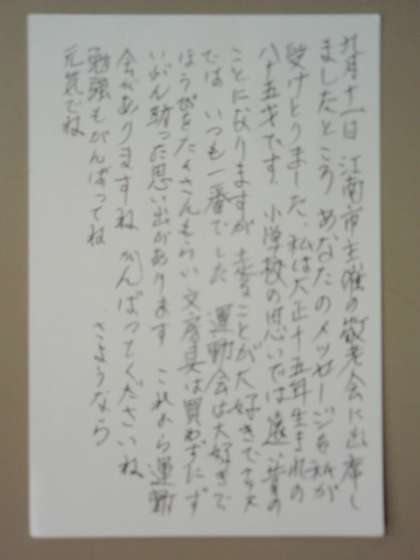 九月十一日 江南市主催の敬老会に出席し
ましたところ あなたのメッセージを私が
受けとりました、私は大正十五年生まれの
八十五才です、小学校の思いでは遠い昔の
ことになりますが 走ることが大好きで
では いつも一番でした 運動会は大好きで
ほうびをたくさんもらい 文房具は買わずにず
いぶん助った思い出があります これから運動
会がありますね がんばってくださいね
勉強もがんばってね
元気でね
さようなら